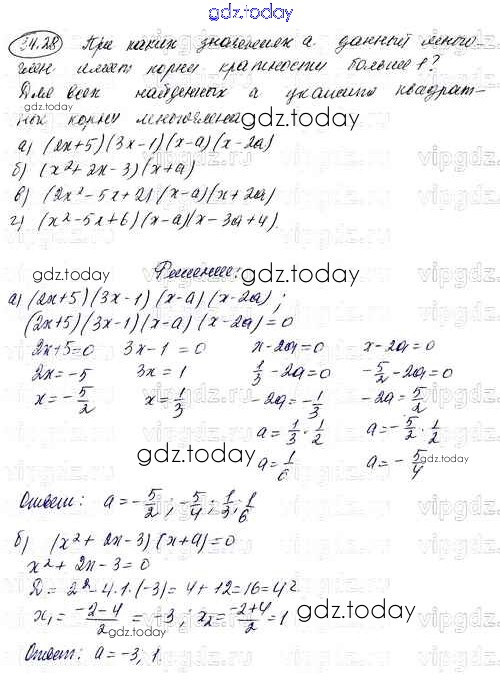 gdz.today
34.28 При каких значениях a данный много-
член имеет корни кратности больше 1?
Для всех найденных a укажите квадрат-
ные корни многочлена
а) (2x+5)(3x-1)(x-a)(x-2a)
б) (x²+2x-3)(x+a)
в) (2x²-5x+2)(x-a)(x+2a)
г) (x²-5x+6)(x-a)(x-3a+4).
Решение:
а) (2x+5)(3x-1)(x-a)(x-2a);
(2x+5)(3x-1)(x-a)(x-2a)=0
2x+5=0 3x-1=0 x-2a=0 x-2a=0
2x=-5 3x=1 1/3-2a=0 -5/2-2a=0
x=-5/2 x=1/3 -2a=-1/3 -2a=5/2
a=1/3·1/2 a=-5/2·1/2
a=1/6 a=-5/4
Ответ: a=-5/2; -5/4; 1/3; 1/6
б) (x²+2x-3)(x+a)=0
x²+2x-3=0
D=2²-4·1·(-3)=4+12=16=4²
x₁=(-2-4)/2=-3; x₂=(-2+4)/2=1
Ответ: a=-3, 1.